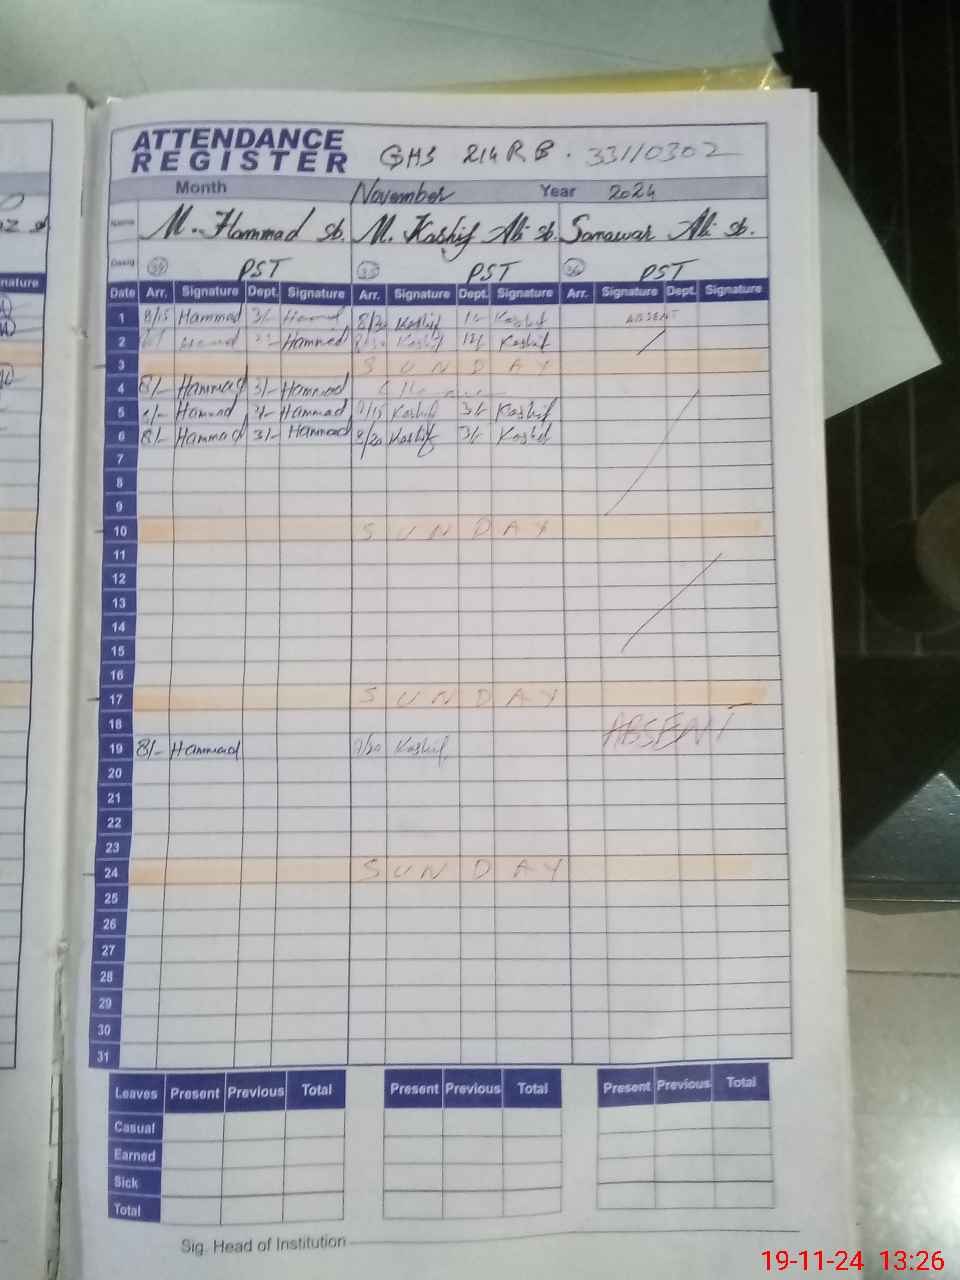 ATTENDANCE
REGISTER GHS 214 RB . 33110302
Month November Year 2024
Name M. Hammad sb. M. Kashif Ali sb. Sanawar Ali sb.
Desig PST PST PST
nature
Date Arr. Signature Dept. Signature Arr. Signature Dept. Signature Arr. Signature Dept. Signature
1 8/15 Hammad 3/- 8/30 Kashif Kashif ABSENT
2 Hammed Kashif 12/ Kashif
3 SUNDAY
4 8/- Hammad 3/- Hammad
5 Hammad 3/- Hammad Kashif 3/- Kashif
6 8/- Hammad 3/- Hammad 8/20 Kashif 3/- Kashif
7
8
9
10 SUNDAY
11
12
13
14
15
16
17 SUNDAY
18
19 8/- Hammad Kashif ABSENT
20
21
22
23
24 SUNDAY
25
26
27
28
29
30
31
Leaves Present Previous Total Present Previous Total Present Previous Total
Casual
Earned
Sick
Total
Sig. Head of Institution
19-11-24 13:26